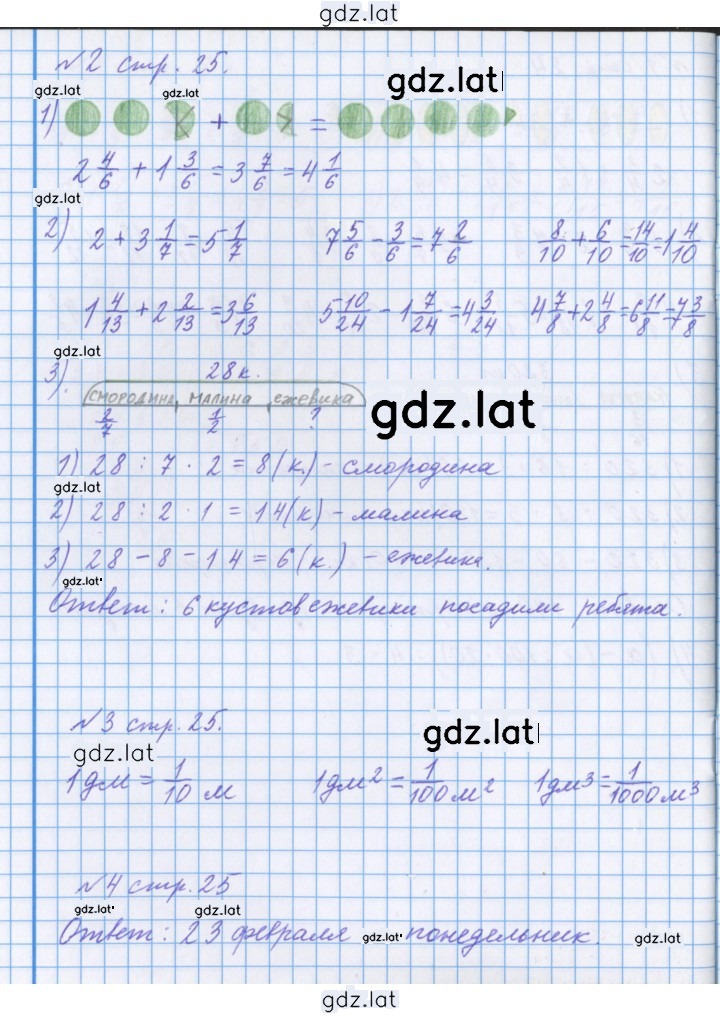 gdz.lat
№2 стр. 25.
gdz.lat
gdz.lat
gdz.lat
1) + =
2 4/6 + 1 3/6 = 3 7/6 = 4 1/6
gdz.lat
2) 2 + 3 1/7 = 5 1/7 7 5/6 - 3/6 = 7 2/6 8/10 + 6/10 = 14/10 = 1 4/10
1 4/13 + 2 2/13 = 3 6/13 5 10/24 - 1 7/24 = 4 3/24 4 7/8 + 2 4/8 = 6 11/8 = 7 3/8
gdz.lat
3). 28 к.
смородина, малина, ежевика
2/7 1/2 ?
gdz.lat
1) 28 : 7 · 2 = 8 (к.) - смородина
gdz.lat
2) 28 : 2 · 1 = 14 (к) - малина
3) 28 - 8 - 14 = 6 (к.) - ежевика.
gdz.lat
Ответ: 6 кустов ежевики посадили ребята.
№3 стр. 25.
gdz.lat
gdz.lat
1 дм = 1/10 м 1 дм² = 1/100 м² 1 дм³ = 1/1000 м³
№4 стр. 25
gdz.lat
gdz.lat
Ответ: 23 февраля gdz.lat понедельник. gdz.lat
gdz.lat